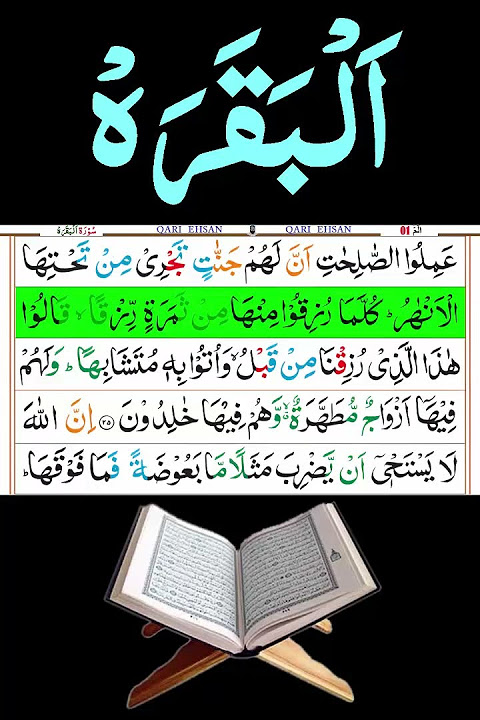 اَلْبَقَرَة
سُوْرَةُ الْبَقَرَة QARI EHSAN QARI EHSAN 01 الٓمّٓ
عَمِلُوا الصّٰلِحٰتِ اَنَّ لَهُمْ جَنّٰتٍ تَجْرِیْ مِنْ تَحْتِهَا
الْاَنْهٰرُ ؕ كُلَّمَا رُزِقُوْا مِنْهَا مِنْ ثَمَرَةٍ رِّزْقًا ۙ قَالُوْا
هٰذَا الَّذِیْ رُزِقْنَا مِنْ قَبْلُ ۙ وَاُتُوْا بِهٖ مُتَشَابِهًا ؕ وَلَهُمْ
فِیْهَاۤ اَزْوَاجٌ مُّطَهَّرَةٌ ۙ وَّهُمْ فِیْهَا خٰلِدُوْنَ ﴿۲۵﴾ اِنَّ اللّٰهَ
لَا یَسْتَحْیٖۤ اَنْ یَّضْرِبَ مَثَلًا مَّا بَعُوْضَةً فَمَا فَوْقَهَا ؕ